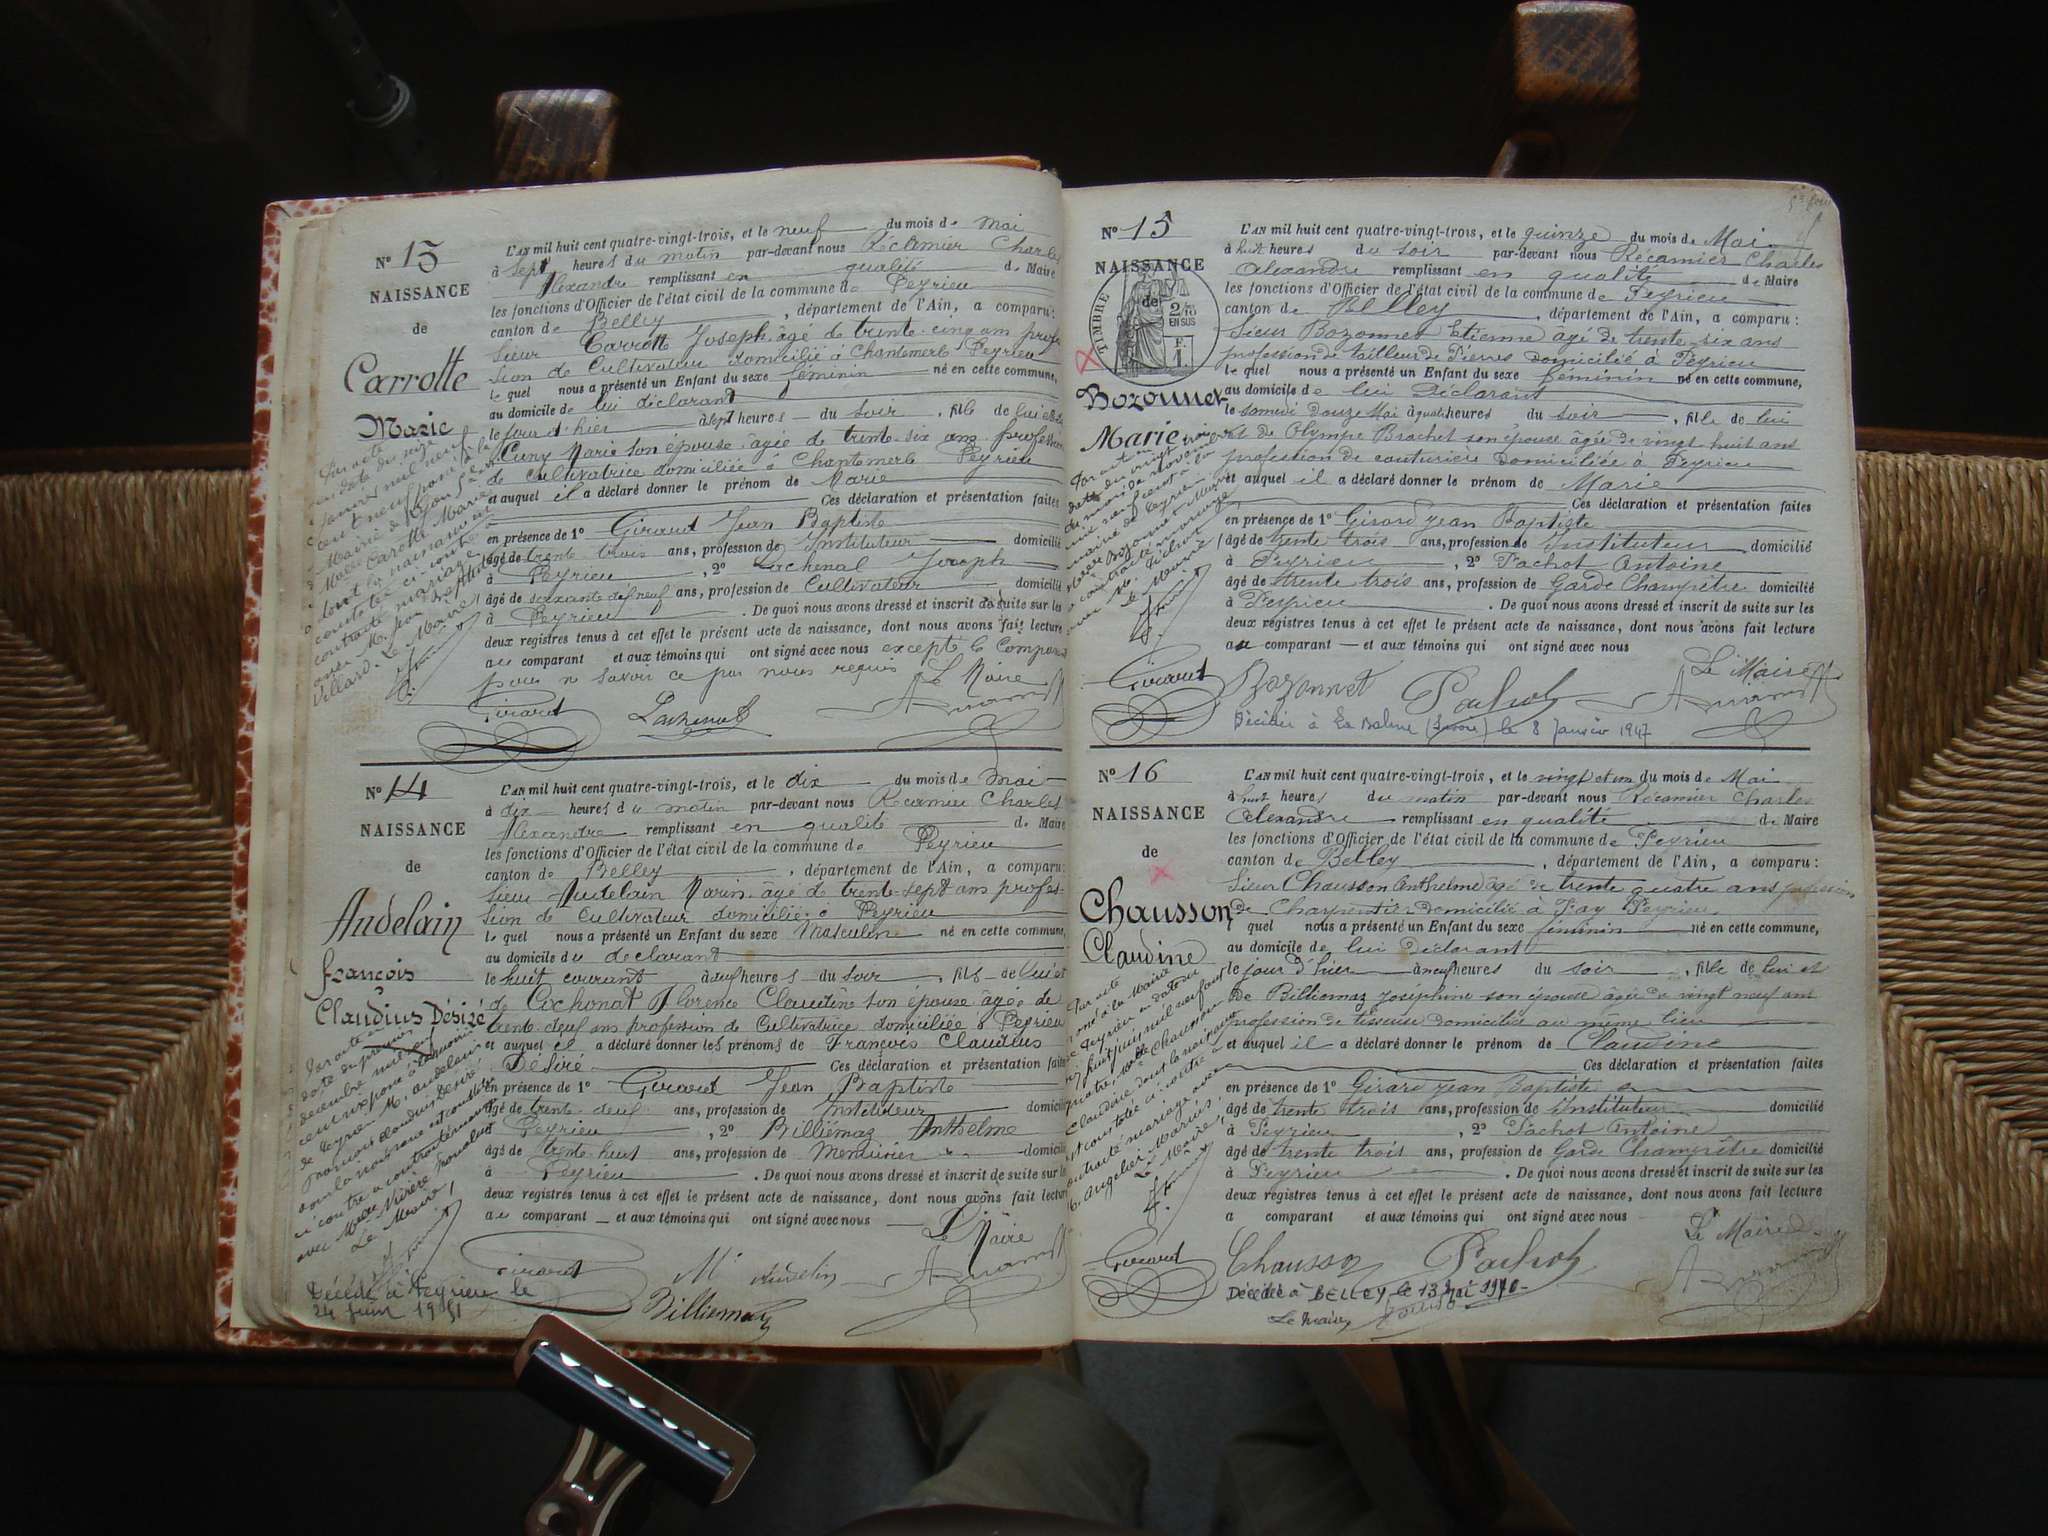 Nº 13
NAISSANCE
de
Carrotte
Marie
L'AN mil huit cent quatre-vingt-trois, et le neuf du mois de Mai
à sept heures du matin par-devant nous Récamier Charles
Alexandre remplissant en qualité de Maire
les fonctions d'Officier de l'état civil de la commune de Peyrieu
canton de Belley, département de l'Ain, a comparu:
Sieur Carrotte Joseph âgé de trente-cinq ans profes-
sion de Cultivateur domicilié à Chantemerle Peyrieu
le quel nous a présenté un Enfant du sexe féminin né en cette commune,
au domicile de lui déclarant
le jour d'hier à sept heures du soir, fille de lui et de
Cuny Marie son épouse âgée de trente-six ans profession
de Cultivatrice domiciliée à Chantemerle Peyrieu
et auquel il a déclaré donner le prénom de Marie
Ces déclaration et présentation faites
en présence de 1º Girard Jean Baptiste
âgé de trente trois ans, profession de Instituteur domicilié
à Peyrieu, 2º Lachenal Joseph
âgé de soixante dix neuf ans, profession de Cultivateur domicilié
à Peyrieu. De quoi nous avons dressé et inscrit de suite sur les
deux registres tenus à cet effet le présent acte de naissance, dont nous avons fait lecture
au comparant et aux témoins qui ont signé avec nous excepté le Comparant
pour ne savoir ce par nous requis Le Maire
Girard Lachenal
Par acte
en date du seize
janvier mil neuf
cent neuf passé à la
Mairie de
Melle Carotte Marie
dont la naissance est
constatée ci-contre
contracté mariage
avec M.
Villard. Le Maire,
Nº 14
NAISSANCE
de
Audelain
françois
Claudius Désiré
L'AN mil huit cent quatre-vingt-trois, et le dix du mois de Mai
à dix heures du matin par-devant nous Récamier Charles
Alexandre remplissant en qualité de Maire
les fonctions d'Officier de l'état civil de la commune de Peyrieu
canton de Belley, département de l'Ain, a comparu:
Sieur Audelain Marin âgé de trente-sept ans profes-
sion de Cultivateur domicilié à Peyrieu
le quel nous a présenté un Enfant du sexe Masculin né en cette commune,
au domicile du déclarant
le huit courant à neuf heures du soir, fils de lui et
de Cochonat Florence Claudine son épouse âgée de
trente-deux ans profession de Cultivatrice domiciliée à Peyrieu
et auquel il a déclaré donner les prénoms de François Claudius
Désiré Ces déclaration et présentation faites
en présence de 1º Girard Jean Baptiste
âgé de trente ans, profession de Instituteur domicilié
Peyrieu, 2º Billiémaz Anthelme
âgé de trente huit ans, profession de Menuisier domicilié
à Peyrieu. De quoi nous avons dressé et inscrit de suite sur les
deux registres tenus à cet effet le présent acte de naissance, dont nous avons fait lecture
au comparant et aux témoins qui ont signé avec nous Le Maire
Girard M Audelin
Billiemaz
Par acte en
date du premier
décembre mil neuf
cent
de Peyrieu M. Audelain
françois Claudius Désiré
dont la naissance est constatée
ci-contre a contracté mariage
avec Melle
Le Maire,
Décédé à Peyrieu le
24 Juin 1951
Nº 15
NAISSANCE
de
TIMBRE
2/10
EN SUS
F.
1.
Bozonnet
Marie
L'AN mil huit cent quatre-vingt-trois, et le quinze du mois de Mai
à huit heures du soir par-devant nous Récamier Charles
Alexandre remplissant en qualité de Maire
les fonctions d'Officier de l'état civil de la commune de Peyrieu
canton de Belley, département de l'Ain, a comparu:
Sieur Bozonnet Etienne âgé de trente-six ans
profession de tailleur de Pierres domicilié à Peyrieu
le quel nous a présenté un Enfant du sexe féminin né en cette commune,
au domicile de lui Déclarant
le samedi douze Mai à quatre heures du soir, fille de lui
et de Olympe Brachet son épouse âgée de vingt-huit ans
profession de couturière domiciliée à Peyrieu
et auquel il a déclaré donner le prénom de Marie
Ces déclaration et présentation faites
en présence de 1º Girard Jean Baptiste
âgé de trente trois ans, profession de Instituteur domicilié
à Peyrieu, 2º Pachot Antoine
âgé de trente trois ans, profession de Garde Champêtre domicilié
à Peyrieu. De quoi nous avons dressé et inscrit de suite sur les
deux registres tenus à cet effet le présent acte de naissance, dont nous avons fait lecture
au comparant et aux témoins qui ont signé avec nous
Le Maire
Girard Bozonnet Pachot
Décédée à La Balme (Savoie) le 8 Janvier 1947
Nº 16
NAISSANCE
de
Chausson
Claudine
L'AN mil huit cent quatre-vingt-trois, et le vingt et un du mois de Mai
à huit heures du matin par-devant nous Récamier Charles
Alexandre remplissant en qualité de Maire
les fonctions d'Officier de l'état civil de la commune de Peyrieu
canton de Belley, département de l'Ain, a comparu:
Sieur Chausson Anthelme âgé de trente quatre ans profession
de Charpentier domicilié à Fay Peyrieu
quel nous a présenté un Enfant du sexe féminin né en cette commune,
au domicile de lui Déclarant
le jour d'hier à neuf heures du soir, fille de lui et
de Billiemaz Joséphine son épouse âgée de vingt neuf ans
profession de tisseuse domiciliée au même lieu
et auquel il a déclaré donner le prénom de Claudine
Ces déclaration et présentation faites
en présence de 1º Girard Jean Baptiste
âgé de trente trois ans, profession de Instituteur domicilié
à Peyrieu, 2º Pachot Antoine
âgé de trente trois ans, profession de Garde Champêtre domicilié
à Peyrieu. De quoi nous avons dressé et inscrit de suite sur les
deux registres tenus à cet effet le présent acte de naissance, dont nous avons fait lecture
a comparant et aux témoins qui ont signé avec nous
Le Maire
Girard Chausson Pachot
Décédée à BELLEY le 13 Mai 1970
Le Maire